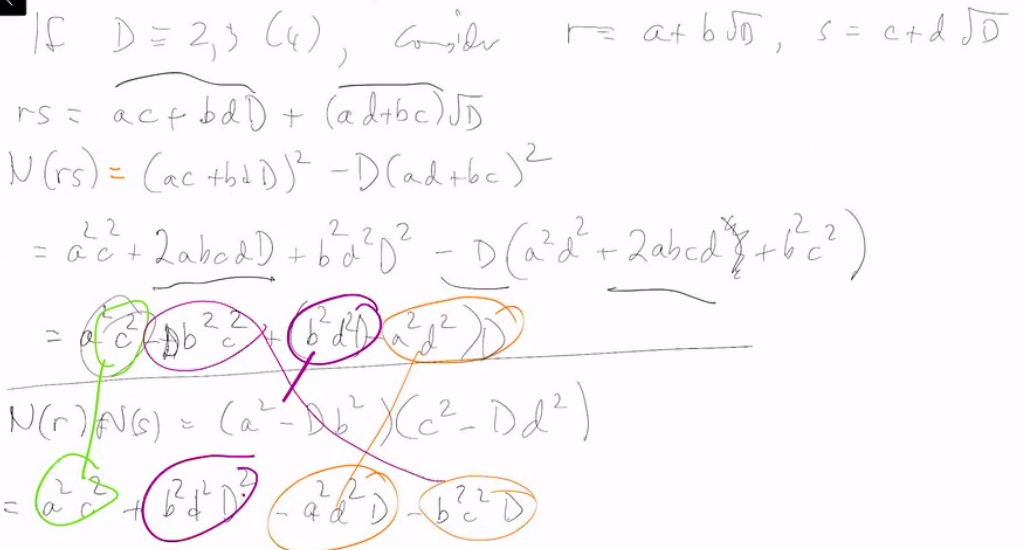 If D ≡ 2,3 (4), consider r = a+b√D, s = c+d√D
rs = ac+bdD + (ad+bc)√D
N(rs) = (ac+bdD)² - D(ad+bc)²
= a²c² + 2abcdD + b²d²D² - D(a²d² + 2abcd + b²c²)
= a²c² - Db²c² + (b²d²D - a²d²)D
N(r)N(s) = (a² - Db²)(c² - Dd²)
= a²c² + b²d²D² - a²d²D - b²c²D